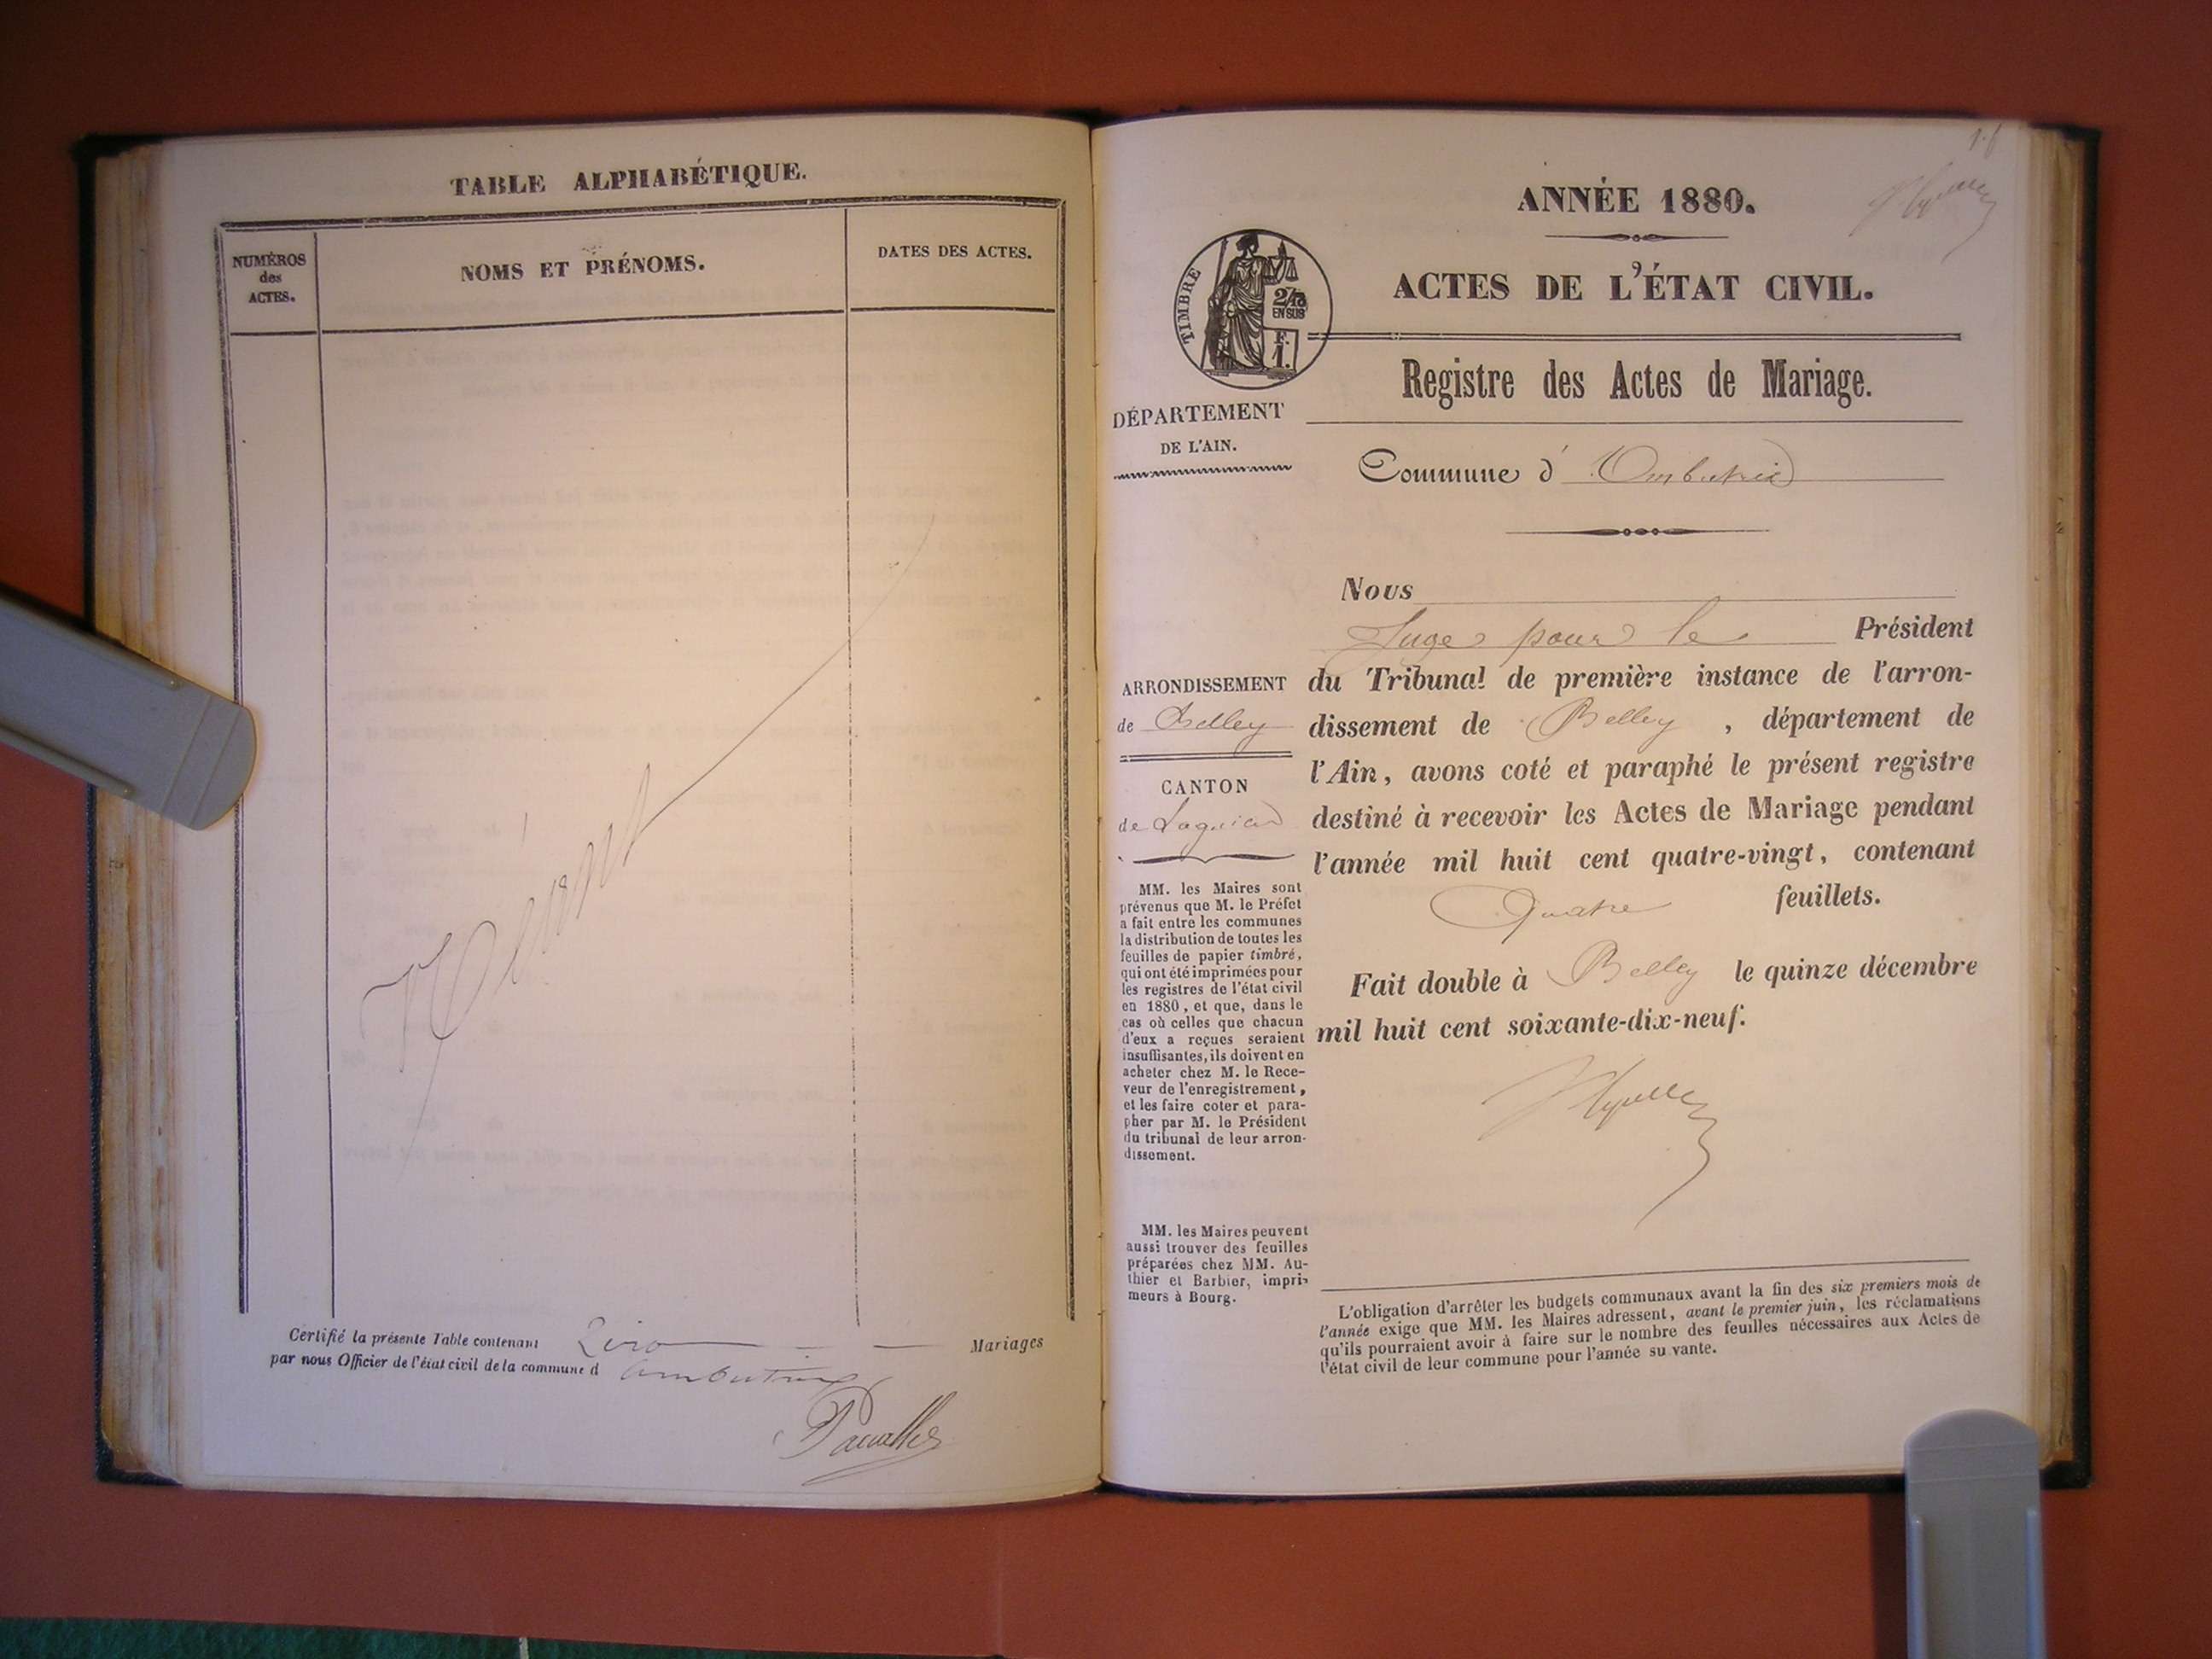 TABLE ALPHABÉTIQUE.
NUMÉROS
des
ACTES.
NOMS ET PRÉNOMS.
DATES DES ACTES.
Néant
Certifié la présente Table contenant Zéro Mariages
par nous Officier de l'état civil de la commune d Ambutrix
1.f
ANNÉE 1880.
ACTES DE L'ÉTAT CIVIL.
TIMBRE
2/10
EN SUS
F.
1.
Registre des Actes de Mariage.
DÉPARTEMENT
DE L'AIN.
Commune d' Ambutrix
Nous
Juge pour le Président
du Tribunal de première instance de l'arron-
dissement de Belley, département de
l'Ain, avons coté et paraphé le présent registre
destiné à recevoir les Actes de Mariage pendant
l'année mil huit cent quatre-vingt, contenant
Quatre feuillets.
Fait double à Belley le quinze décembre
mil huit cent soixante-dix-neuf.
ARRONDISSEMENT
de Belley
CANTON
de Lagnieu
MM. les Maires sont
prévenus que M. le Préfet
a fait entre les communes
la distribution de toutes les
feuilles de papier timbré,
qui ont été imprimées pour
les registres de l'état civil
en 1880, et que, dans le
cas où celles que chacun
d'eux a reçues seraient
insuffisantes, ils doivent en
acheter chez M. le Rece-
veur de l'enregistrement,
et les faire coter et para-
pher par M. le Président
du tribunal de leur arron-
dissement.
MM. les Maires peuvent
aussi trouver des feuilles
préparées chez MM. Au-
thier et Barbier, impri-
meurs à Bourg.
L'obligation d'arrêter les budgets communaux avant la fin des six premiers mois de
l'année exige que MM. les Maires adressent, avant le premier juin, les réclamations
qu'ils pourraient avoir à faire sur le nombre des feuilles nécessaires aux Actes de
l'état civil de leur commune pour l'année su vante.